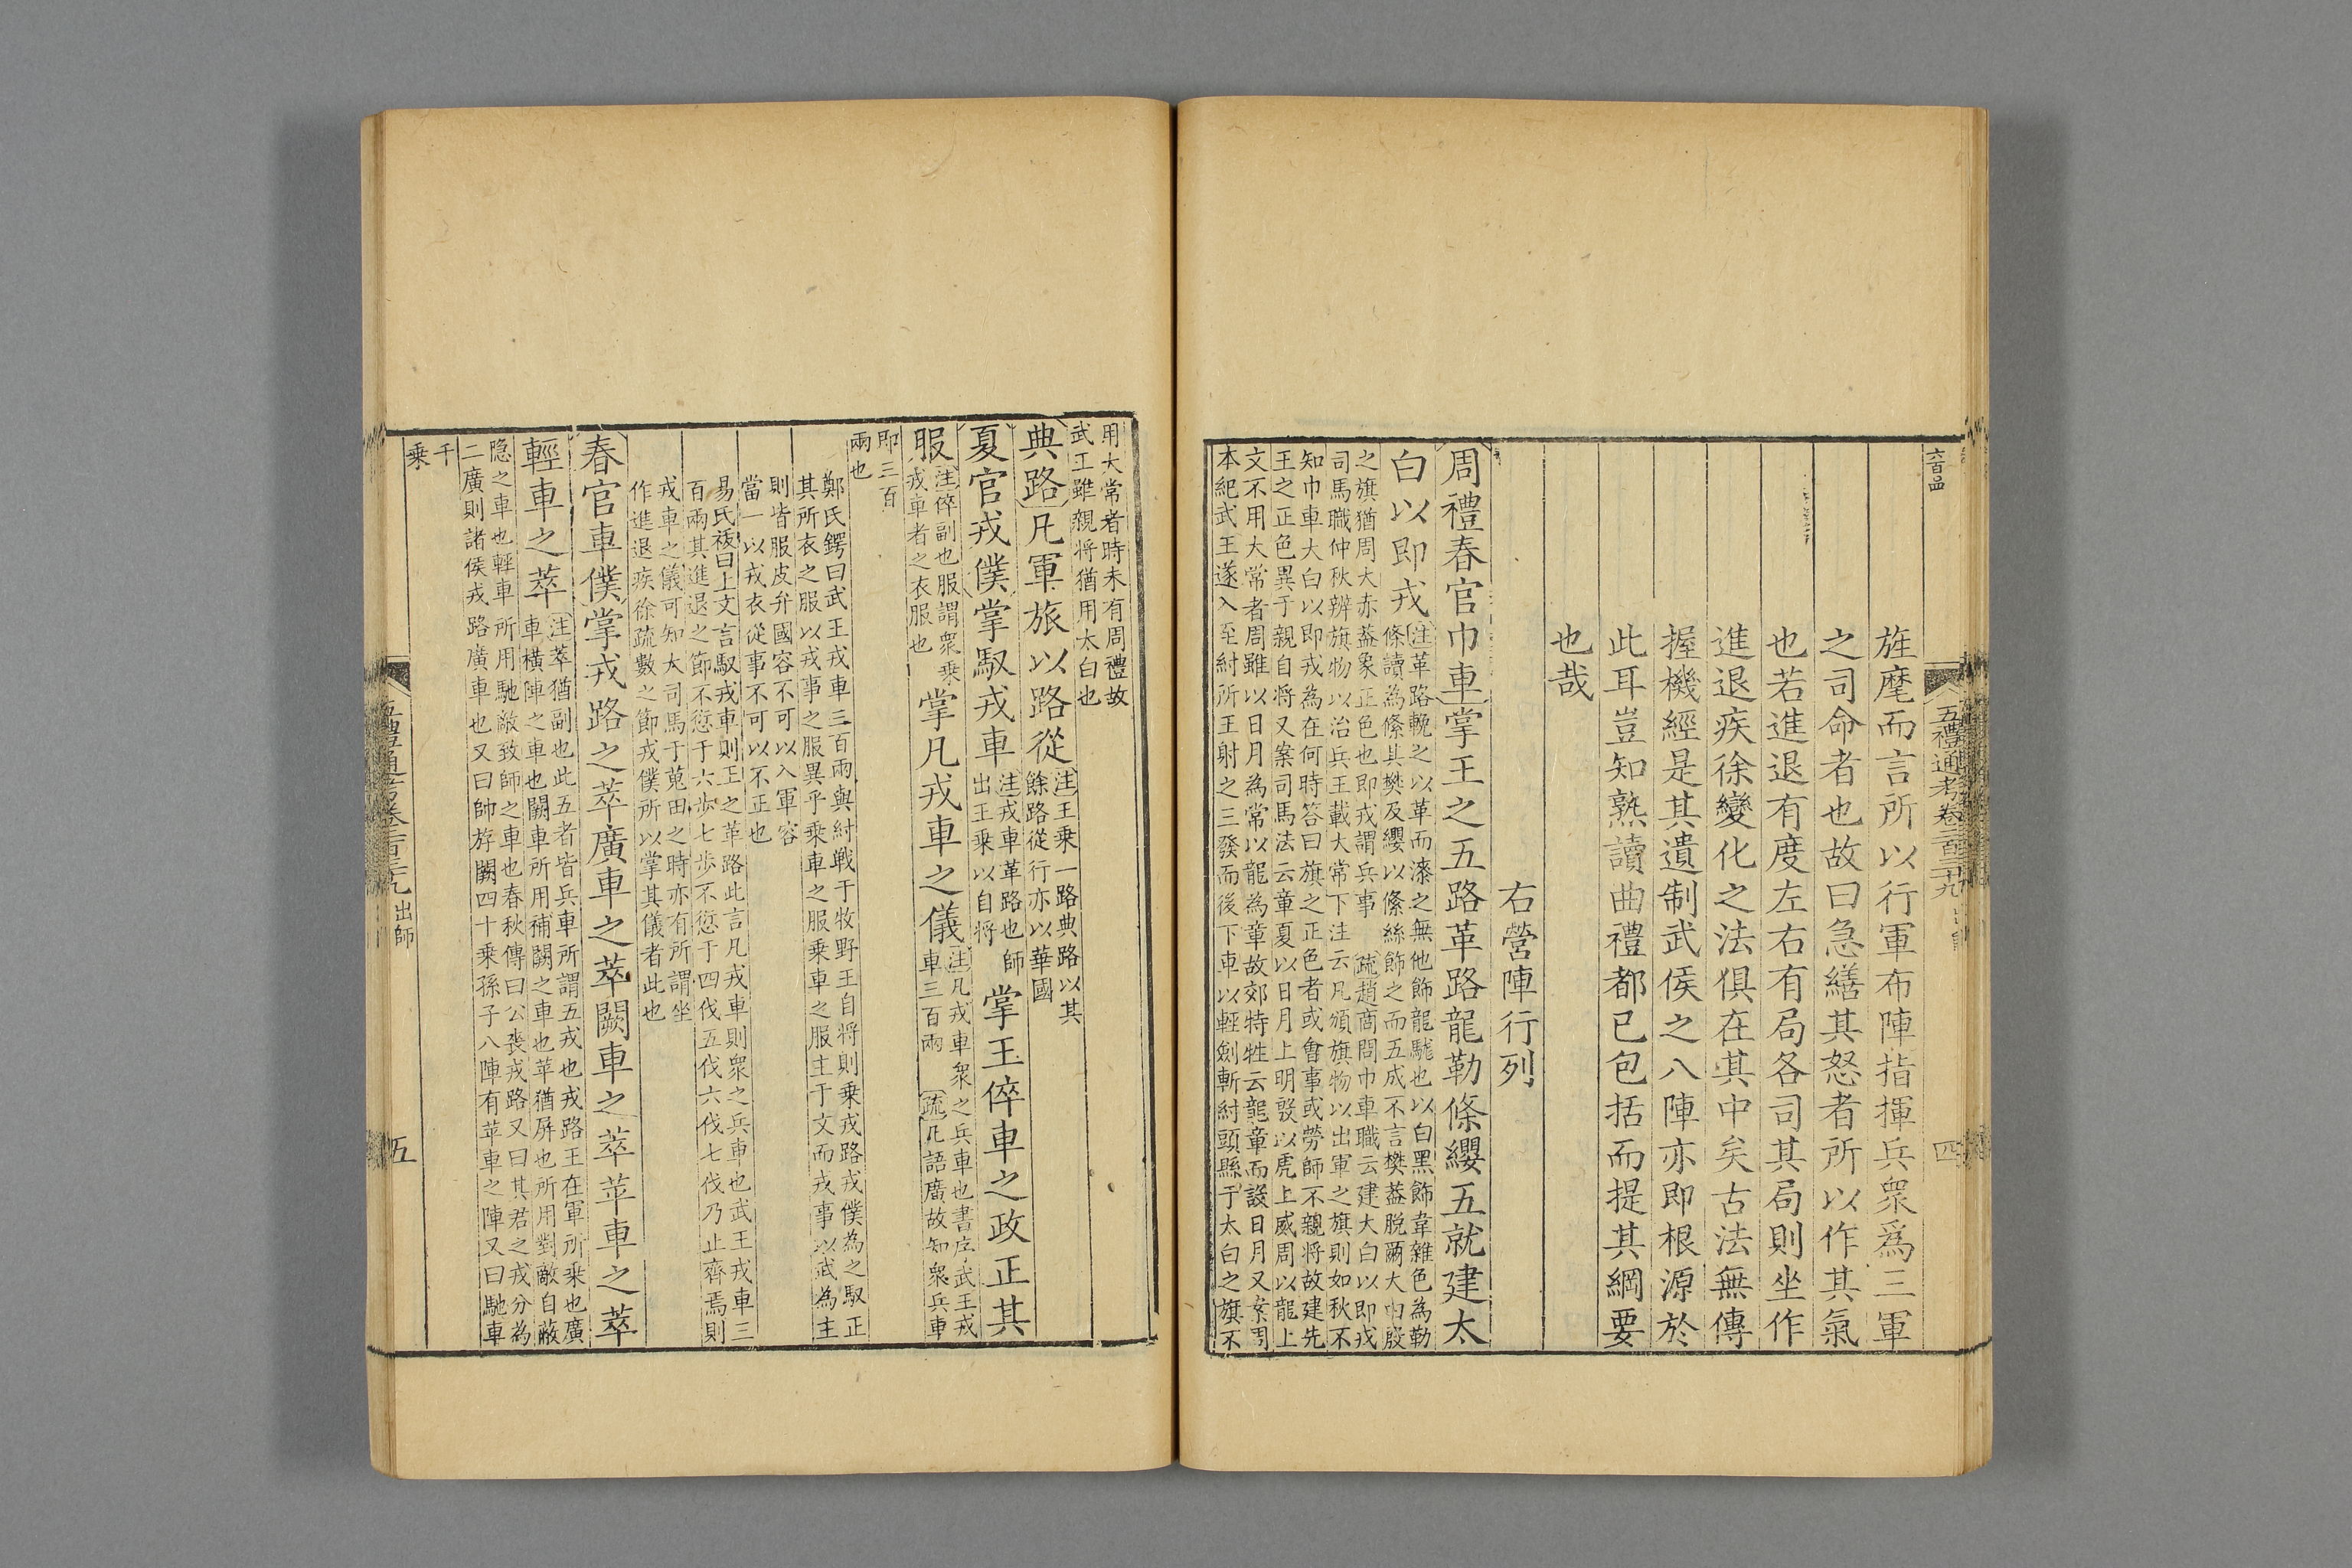 六百品
五禮通考卷二百三十九
四
旌麾而言所以行軍布陣指揮兵衆爲三軍
之司命者也故曰急繕其怒者所以作其氣
也若進退有度左右有局各司其局則坐作
進退疾徐變化之法俱在其中矣古法無傳
握機經是其遺制武侯之八陣亦即根源於
此耳豈知熟讀曲禮都已包括而提其綱要
也哉
右營陣行列
周禮春官巾車掌王之五路革路龍勒條纓五就建太
白以即戎
注革路鞔之以革而漆之無他飾龍駹也以白黑飾韋雜色為勒
條讀為絛其樊及纓以絛絲飾之而五成不言樊蓋脫爾大白殷
之旗猶周大赤蓋象正色也即戎謂兵事
疏趙商問巾車職云建大白以即戎
司馬職仲秋辨旗物以治兵王載大常下注云凡頒旗物以出軍之旗則如秋不
知巾車大白以即戎為在何時答曰旗之正色者或會事或勞師不親将故建先
王之正色異于親自将又案司馬法云章夏以日月上明殷以虎上威周以龍上
文不用大常者周雖以日月為常以龍為章故郊特牲云龍章而設日月又案周
本紀武王遂入至紂所王射之三發而後下車以輕劍斬紂頭縣于太白之旗不
用大常者時未有周禮故
武王雖親将猶用太白也
典路凡軍旅以路從
注王乗一路典路以其
餘路從行亦以華國
夏官戎僕掌馭戎車
注戎車革路也師
出王乗以自将
掌王倅車之政正其
服
注倅副也服謂衆乗
戎車者之衣服也
掌凡戎車之儀
注凡戎車衆之兵車也書序武王戎
車三百兩
疏凡語廣故知衆兵車
即三百
兩也
鄭氏鍔曰武王戎車三百兩與紂戰于牧野王自将則乗戎路戎僕為之馭正
其所衣之服以戎事之服異乎乘車之服乗車之服主于文而戎事以武為主
則皆服皮弁國容不可以入軍容
當一以戎衣從事不可以不正也
易氏祓曰上文言馭戎車則王之革路此言凡戎車則衆之兵車也武王戎車三
百兩其進退之節不愆于六歩七歩不愆于四伐五伐六伐七伐乃止齊焉則
戎車之儀可知大司馬于蒐田之時亦有所謂坐
作進退疾徐疏數之節戎僕所以掌其儀者此也
春官車僕掌戎路之萃廣車之萃闕車之萃苹車之萃
輕車之萃
注萃猶副也此五者皆兵車所謂五戎也戎路王在軍所乗也廣
車橫陣之車也闕車所用補闕之車也苹猶屏也所用對敵自蔽
隐之車也輕車所用馳敵致師之車也春秋傳曰公喪戎路又曰其君之戎分為
二廣則諸侯戎路廣車也又曰帥斿闕四十乗孫子八陣有苹車之陣又曰馳車
千
乗
五禮通考卷二百三十九 出師
五